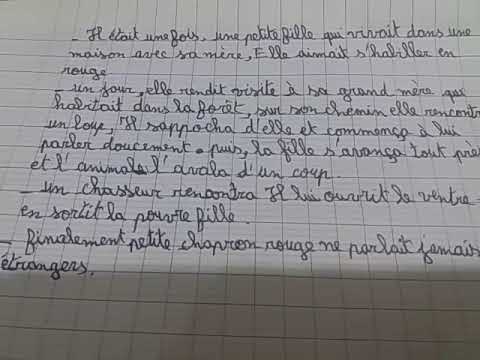 - Il était une fois, une petite fille qui vivait dans une
maison avec sa mère, Elle aimait s'habiller en
rouge
- un jour, elle rendit visite à sa grand mère qui
habitait dans la forêt, sur son chemin elle rencontr
un loup, Il sappocha d'elle et commença à lui
parler doucement. puis, la fille s'avança tout près
et l'animale l'avala d'un coup.
- un chasseur rencontra Il lui ouvrit le ventre
en sortit la pouvre fille.
- finalement petite chapron rouge ne parlait jamais
étrangers.